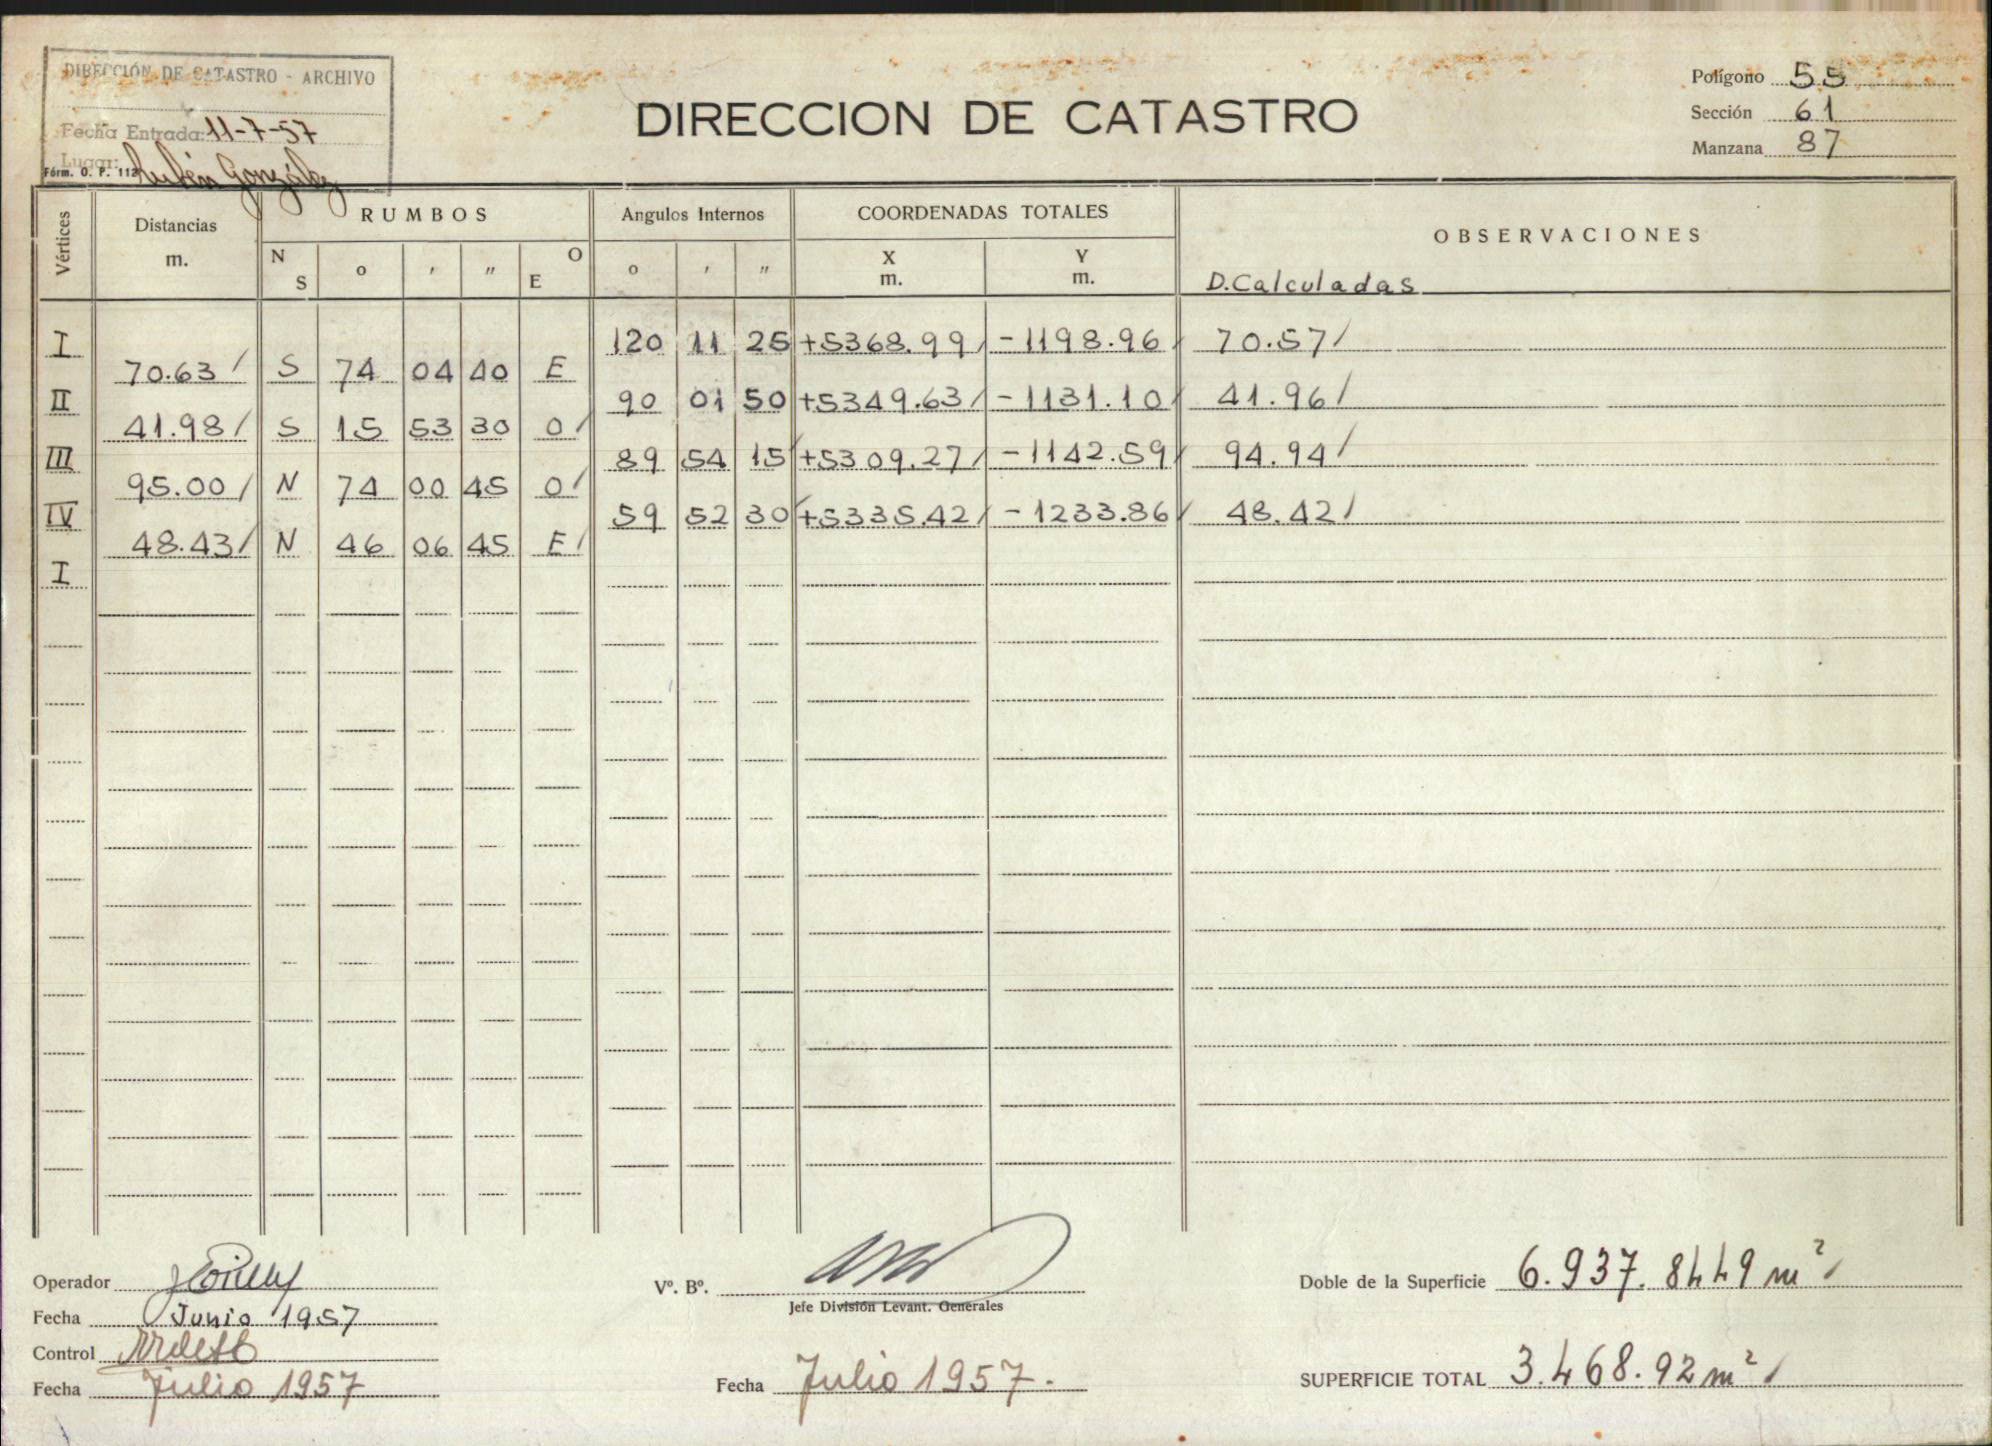 DIRECCIÓN DE CATASTRO - ARCHIVO
Fecha Entrada: 11-7-57
Lugar:
Fórm. O. P. 112 Rubén González
DIRECCION DE CATASTRO
Polígono 55
Sección 61
Manzana 87
Vértices Distancias m. RUMBOS Angulos Internos COORDENADAS TOTALES OBSERVACIONES
N S o ' '' O E o ' '' X m. Y m. D. Calculadas
I 120 11 25 +5368.99 -1198.96 70.57
70.63 S 74 04 40 E
II 90 01 50 +5349.63 -1131.10 41.96
41.98 S 15 53 30 O
III 89 54 15 +5309.27 -1142.59 94.94
95.00 N 74 00 45 O
IV 59 52 30 +5335.42 -1233.86 48.42
48.43 N 46 06 45 E
I
Operador
Fecha Junio 1957
Control
Fecha Julio 1957
Vº. Bº.
Jefe División Levant. Generales
Fecha Julio 1957.
Doble de la Superficie 6.937.8449 m²
SUPERFICIE TOTAL 3.468.92 m²